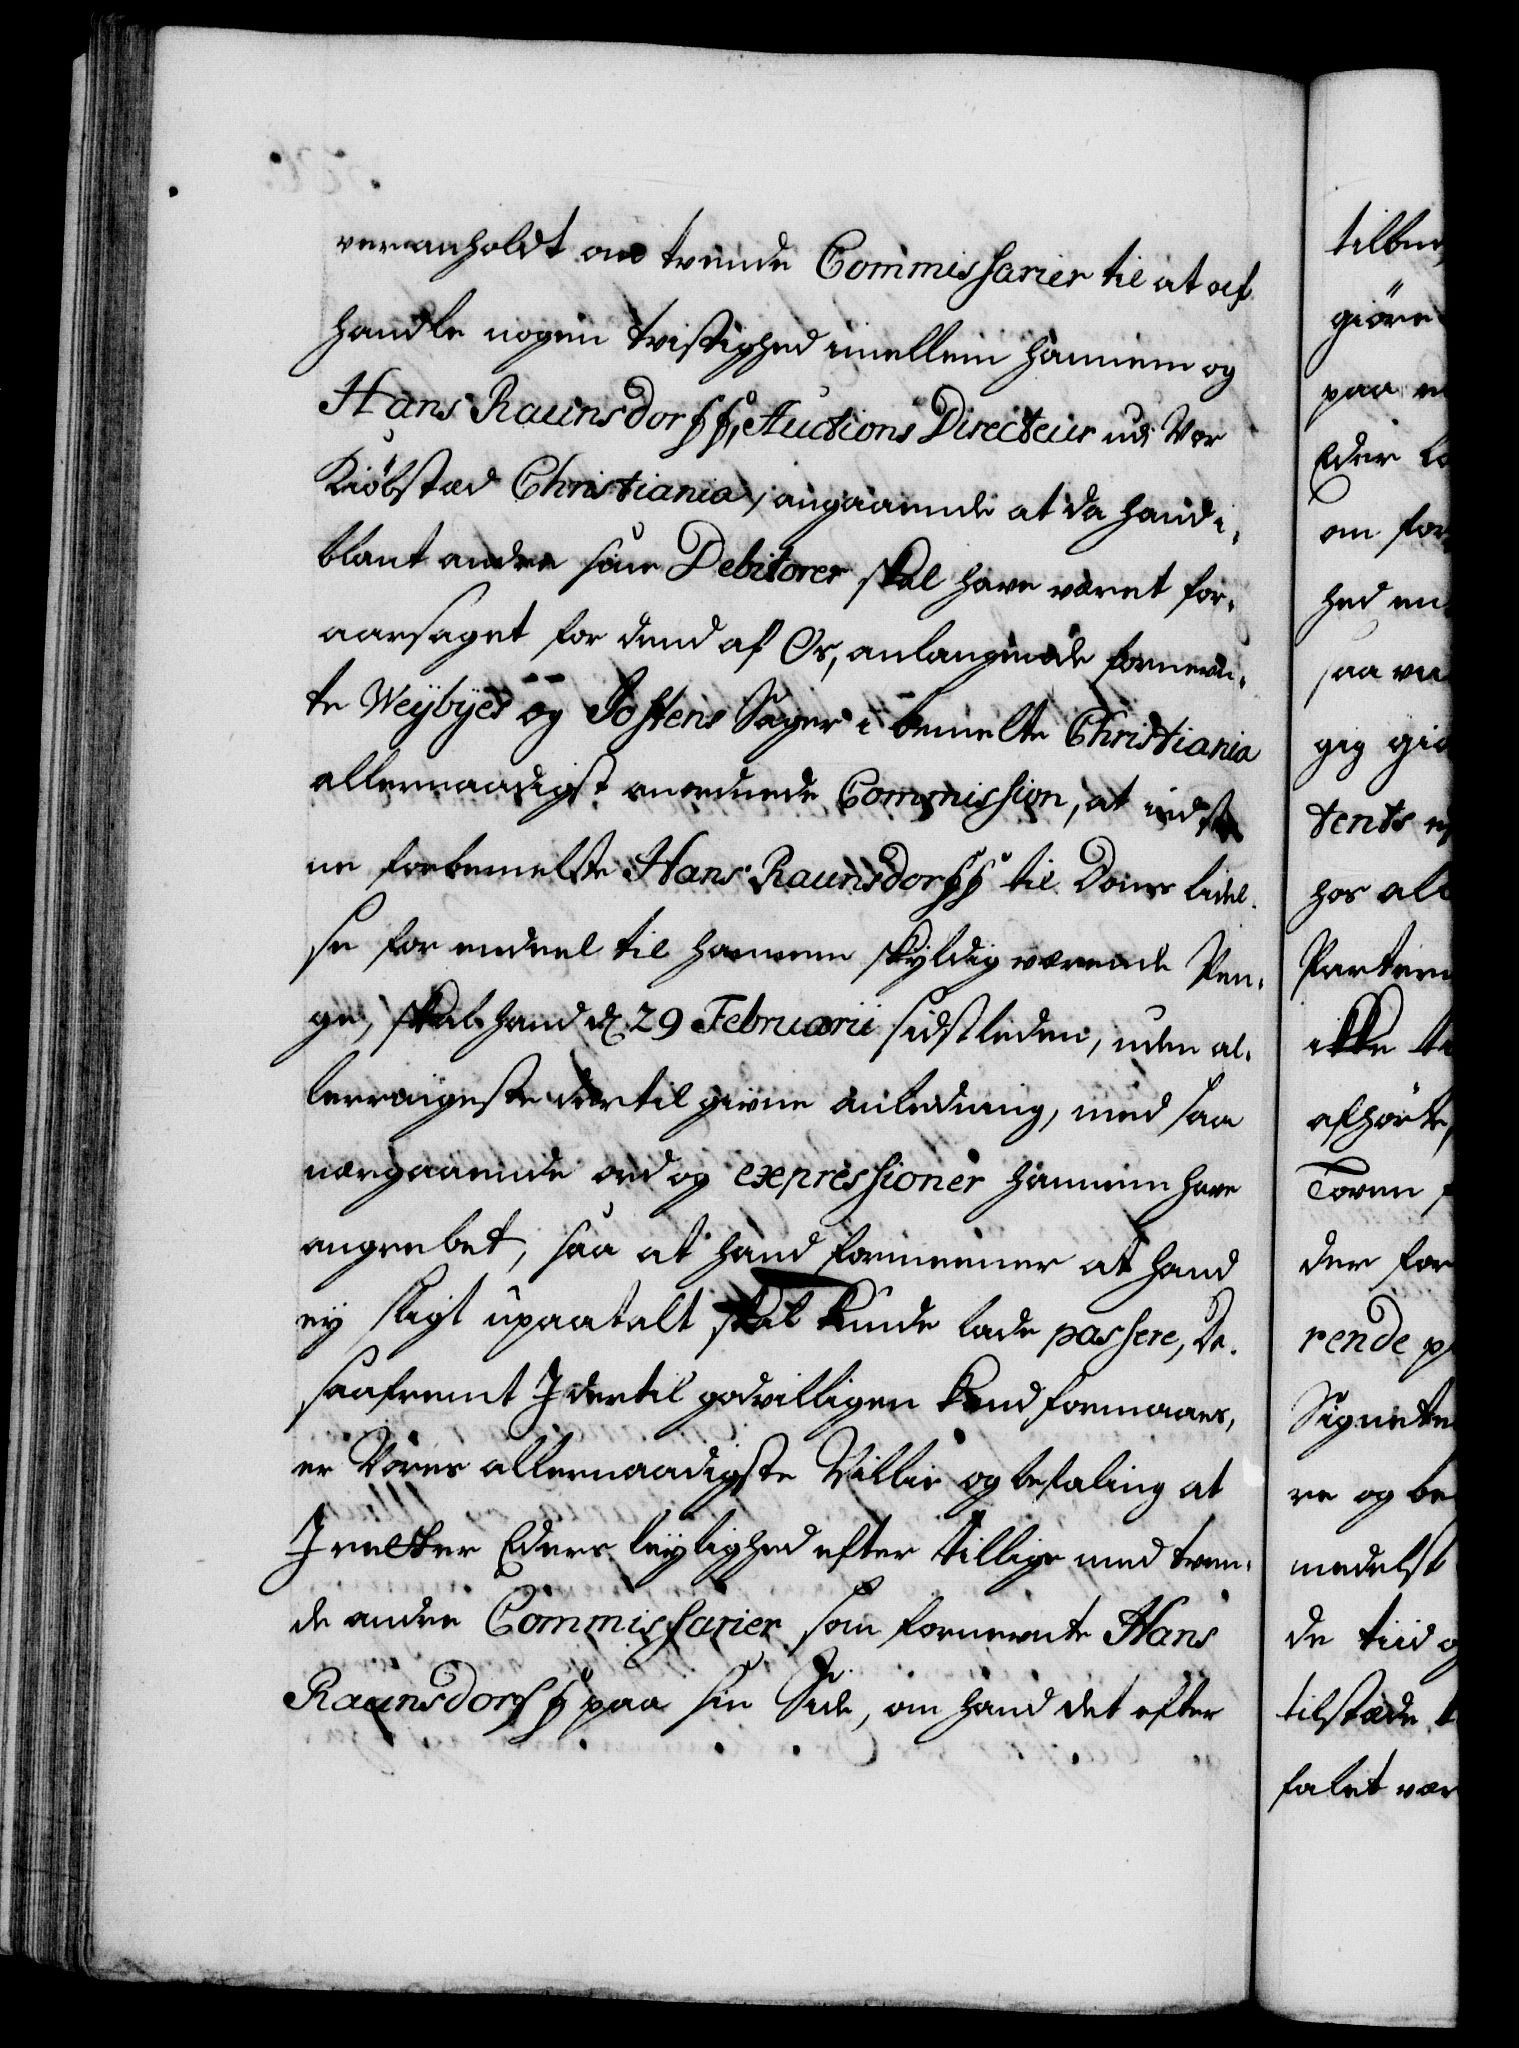 veranholdt om tvende Commissarier til at af
handle nogen tvistighed imellem hannem og
Hans Raunsdorff, Auctions Directeur udi Vor
Kiøbstæd Christiania, angaaende at da hand i,
blant andre sine Debitorer skal have været for,
aarsaget for dend af Os, anlangende fornevn,
te Weÿbÿes og Jostens Sager i bemelte Christiania
allernaadigst anordnede Commission, at indstæ
ne forbemelte Hans Raunsdorff til Doms lidel,
se for endeel til hannem skyldig værende Pen,
ge, skal hand d. 29 Februarii sidstleden, uden al,
lerringeste dertil givne anledning, med saa
nærgaaende ord og expressioner hannem have
angrebet, saa at hand formeener at hand
ey sligt upaatalt skal kunde lade passere, Da,
saafremt I dertil godvilligen kand formaaes,
er Vores allernaadigste Villie og befaling at
I rætter Eders leylighed efter tillige med tven,
de andre Commissarier som fornevnte Hans
Raunsdorff paa sin Side, om hand det efter
tilbør,
giøre
paa
Eder
om for
hed
saa
gig
tents
hos
Parter
ikke
afhørte,
Toren
der for
rende
Signete
re og be
medelst
de tiid
tilstæde
falet vær